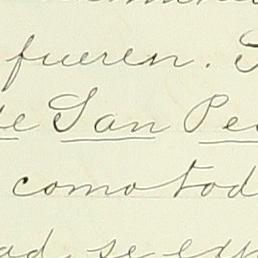 fueren.
San Pe
como tod
ad, se exp